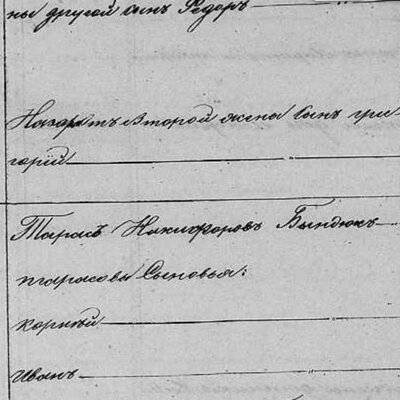 ны другой сынъ Федоръ
Назаръ второй жены сынъ гри-
горій
Тарасъ Никифоровъ Бындюкъ
тарасовы сыновья:
корнѣй
иванъ